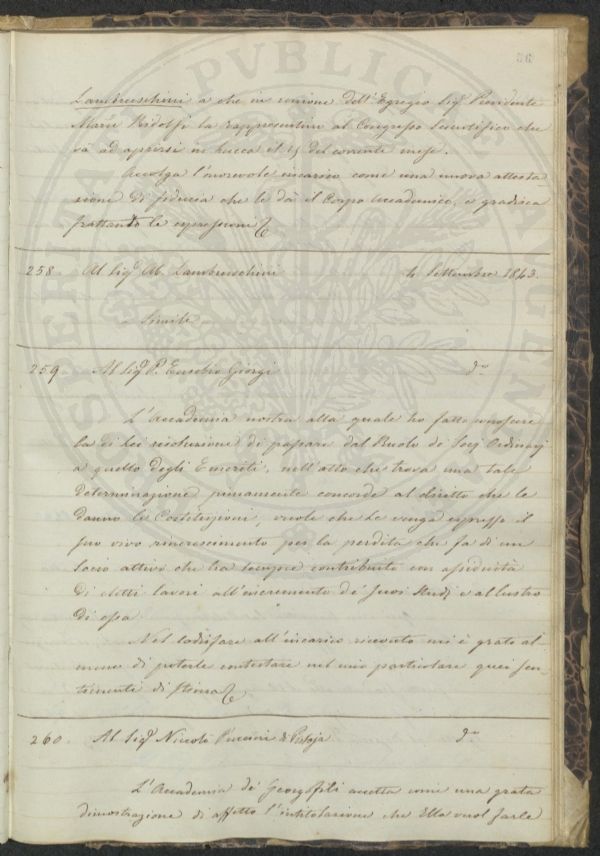 56
Lambruschini a che in unione dell'Egregio Sig.r Presidente
March. Ridolfi la rappresentino al Congresso Scientifico che
và ad aprirsi in Lucca il 15 del corrente mese.
Accolga l'onorevole incarico come una nuova attesta-
zione di fiducia che le dà il Corpo Accademico, e gradisca
frattanto le espressioni
258. Al Sig.r Ab. Lambruschini 4 Settembre 1843.
Simile
259. Al Sig.r P. Eusebio Giorgi d.o
L'Accademia nostra alla quale ho fatto conoscere
la di Lei risoluzione di passare dal Ruolo de Socj Ordinarj
a quello degli Emeriti, nell'atto che trova una tale
determinazione pienamente concorde al diritto che le
danno le Costituzioni, vuole che Le venga espresso il
suo vivo rincrescimento per la perdita che fa di un
Socio attivo che ha sempre contribuito con assiduità
di dotti lavori all'incremento de' suoi Studj e al lustro
di essa.
Nel sodisfare all'incarico ricevuto mi è grato al-
meno di poterle contestare nel mio particolare quei sen-
timenti di stima
260. Al Sig.r Niccolò Puccini di Pistoja d.o
L'Accademia de' Georgofili accetta come una grata
dimostrazione di affetto l'intitolazione che Ella vuol farle
PVBLICAE